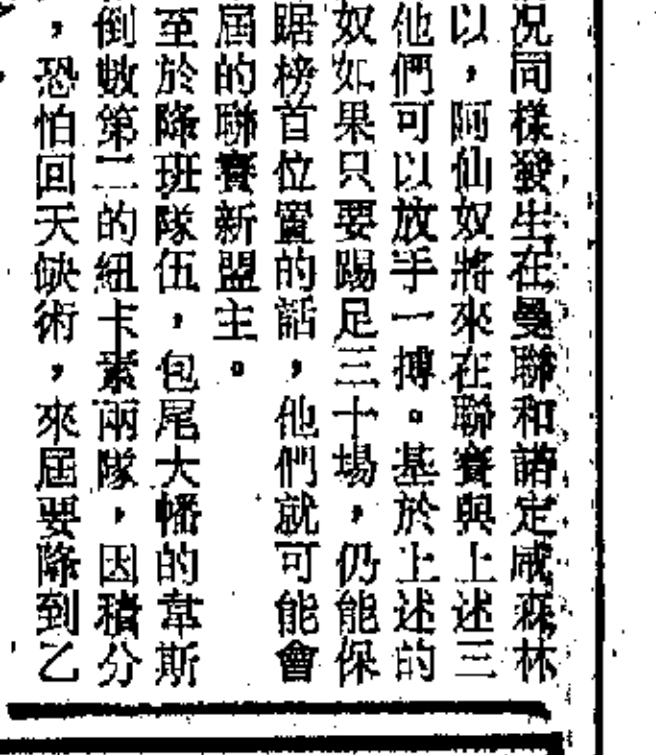 況同樣發生在曼聯和諾定咸森林
以，阿仙奴將來在聯賽與上述三
他們可以放手一搏。基於上述的
奴如果只要踢足三十場，仍能保
踞榜首位置的話，他們就可能會
屆的聯賽新盟主。
至於降班隊伍，包尾大幡的韋斯
倒數第二的紐卡素兩隊，因積分
，恐怕回天缺術，來屆要降到乙